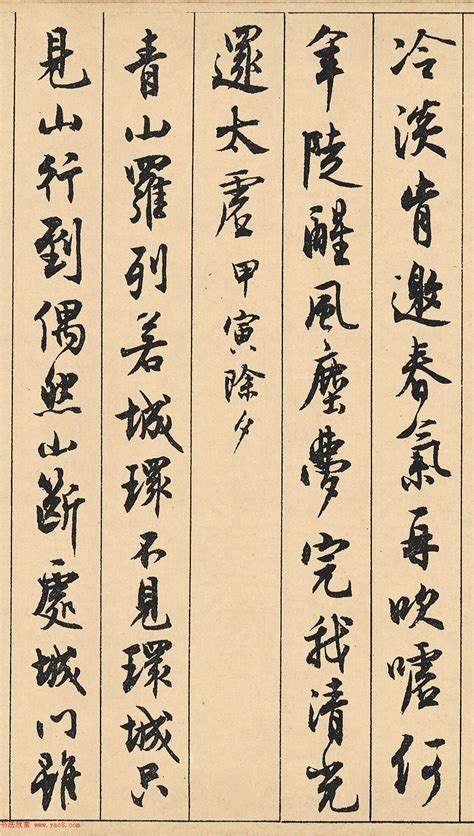 冷淡肯邀春氣再吹嘘何
年陡醒風塵夢完我清光
還太虛甲寅除夕
青山羅列若城環不見環城只
見山行到偶然山斷處城門雖
书法欣赏 www.yac8.com